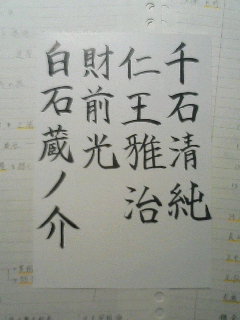 千石清純
仁王雅治
財前光
白石蔵ノ介